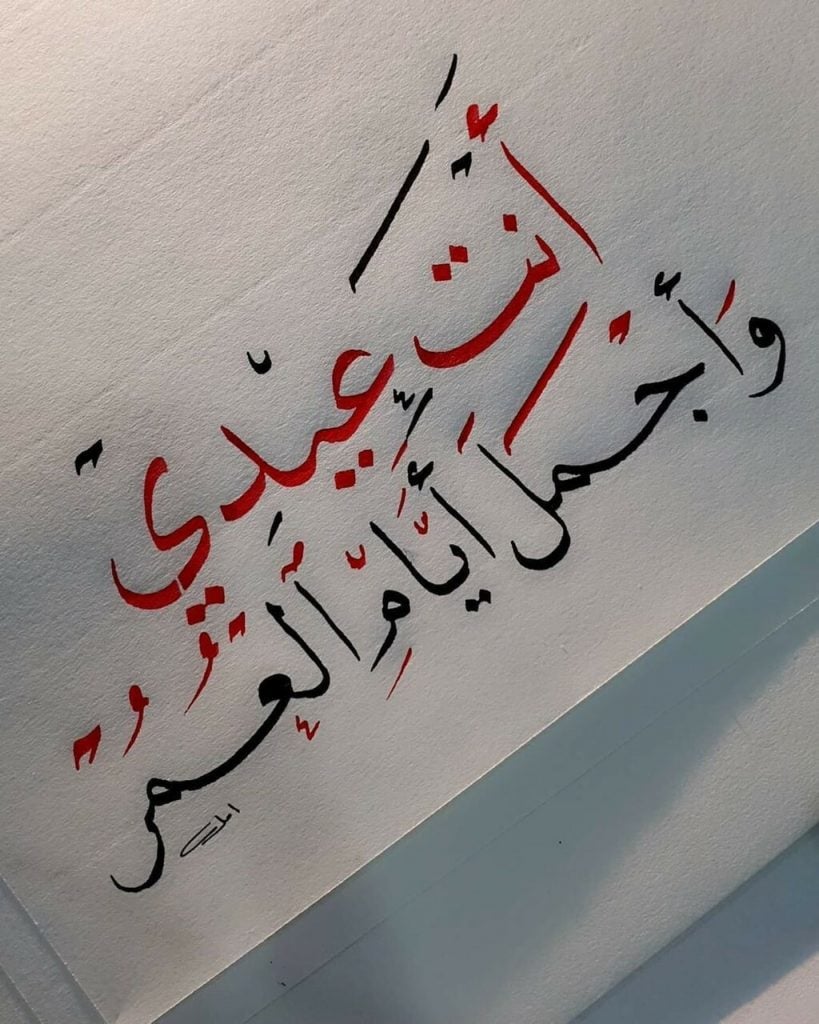 أنت عيدي
وَأجمل أيَّامِ العمر